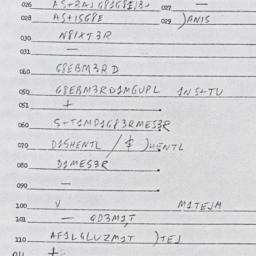 026 AS+2AJ G81G8E13+ 027 —
028 AS+1SG8E 029 )ANIS
030 N81XT3R
031 —
040 G8EBM3RD
050 G8EBM3RD1MGUPL 1NS+TU
051 +
060 S+T1MD1G83RMES3R
070 D1SHENTL / $ )UENTL
080 D1MES3R
090 —
100 V M1TEJM
101 — QD3M1T
110 AF1LGLUZM1T )TEJ